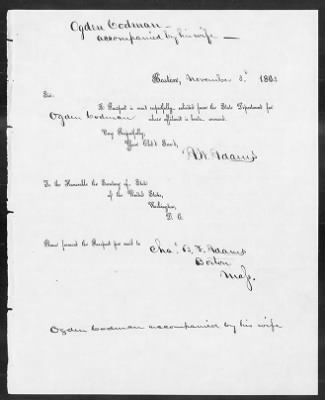 Ogden Codman —
accompanied by his wife —
Boston, November 3, 186
Sir:
A Passport is most respectfully solicited from the State Department for
Ogden Codman whose affidavit is hereto annexed.
Very Respectfully,
Your Obd't Serv't,
Adams
To the Honorable the Secretary of State
of the United States,
Washington,
D. C.
Please forward the Passport per mail to Chas. B. F. Adams
Boston
Mass.
Ogden Codman accompanied by his wife